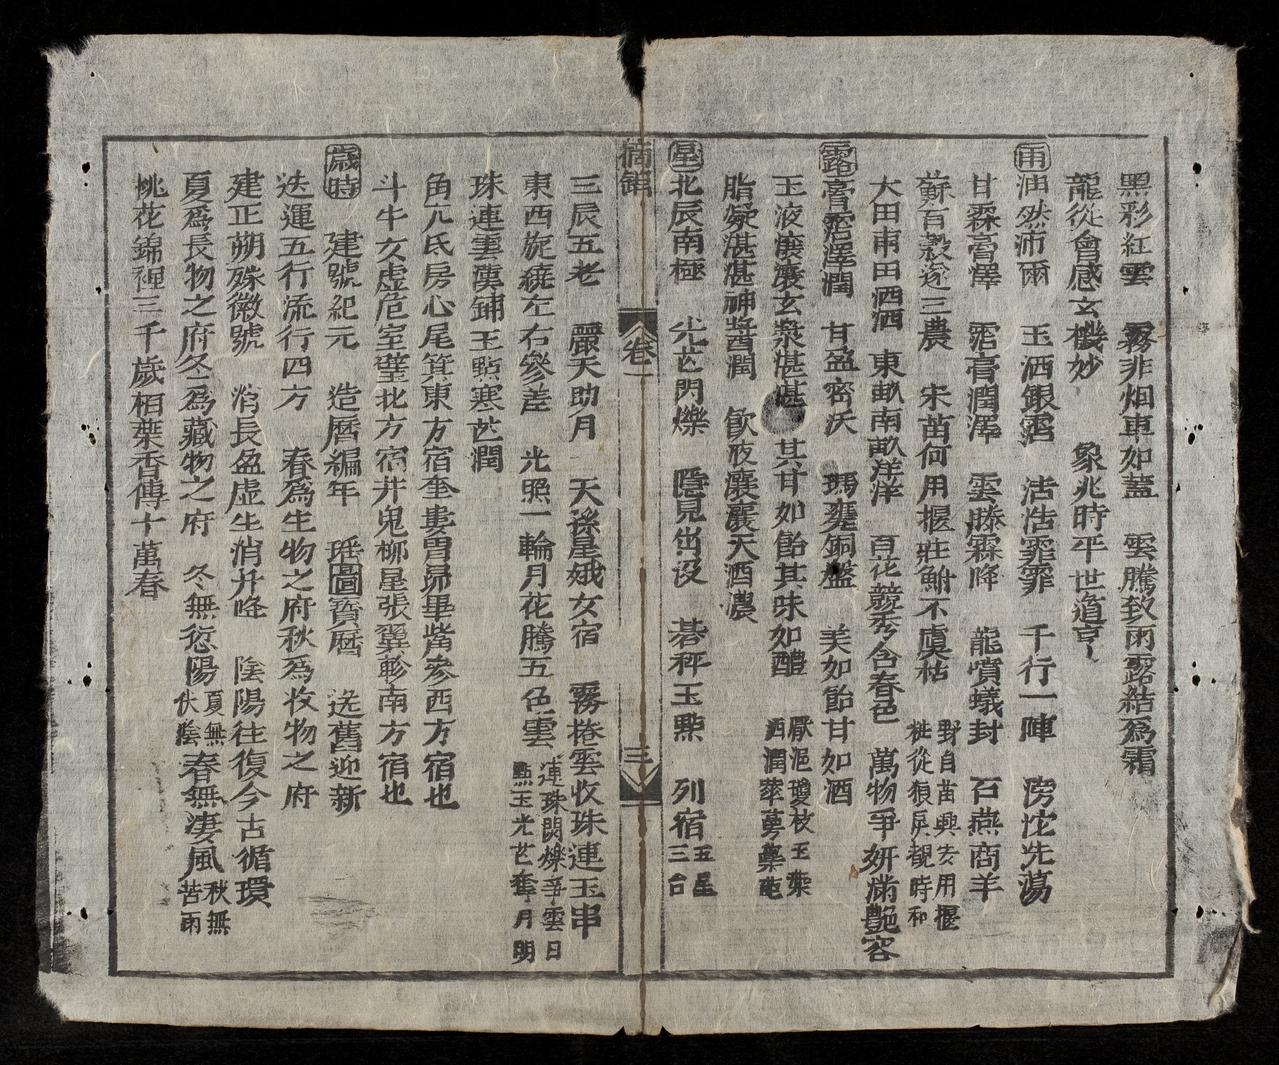 黑彩紅雲 霧非烟車如蓋 雲騰致雨露結爲霜
龍從會感玄機妙 象兆時平世道亨
雨 油然沛雨 玉洒銀霑 浩浩霏霏 千行一陣 滂沱先蕩
甘霖膏澤 霑膏潤澤 雲滕霖降 龍噴蟻封 石燕商羊
蘇百穀遂三農 宋苗何用揠莊鮒不虞枯 野自苗興安用揠 從狼戾覩時和
大田甫田洒洒 東畝南畝洋洋 百花競秀含春色 萬物爭妍滿艶容
露 膏霑澤潤 甘盈密沃 瑪甕銅盤 美如飴甘如酒
玉液瀼瀼玄漿湛湛 其甘如飴其味如醴 厭浥瓊枝玉葉 洒潤華萼藥苞
脂凝湛湛神醬潤 飲液瀼瀼天酒濃
星 北辰南極 光芒閃爍 隱見出没 碁秤玉㸃 列宿 五星 三台
摘錦 卷一 三
三辰五老 麗天助月 天孫星娥女宿 霧捲雲收珠連玉串
東西旋繞左右參差 光照一輪月花騰五色雲 連珠閃爍爭雲日 㸃玉光芒奪月明
珠連雲漢鋪玉㸃寒芒潤
角亢氐房心尾箕東方宿奎婁胃昴畢觜參西方宿也
斗牛女虚危室璧北方宿井鬼柳星張翼軫南方宿也
歲時 建號紀元 造曆編年 瑶圖寳曆 送舊迎新
迭運五行流行四方 春爲生物之府秋爲收物之府
建正朔殊徽號 消長盈虚生消升降 陰陽往復今古循環
夏爲長物之府冬爲藏物之府 冬無愆陽 夏無伏陰 春無凄風 秋無苦雨
桃花錦裡三千歲相葉香傳十萬春